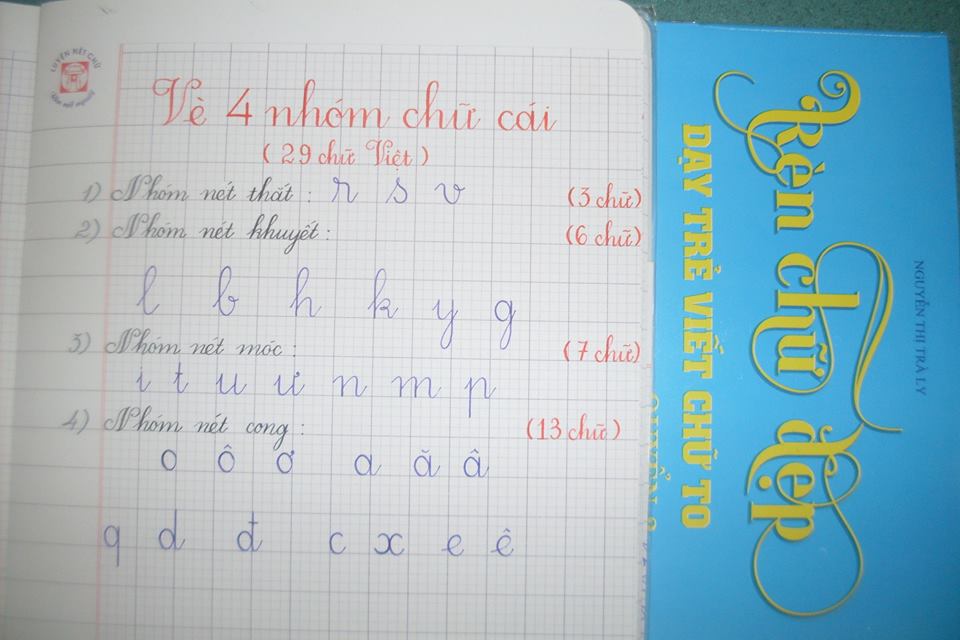 LUYỆN NÉT CHỮ
Rèn nết người
Vè 4 nhóm chữ cái
( 29 chữ Việt )
1) Nhóm nét thắt : r s v (3 chữ)
2) Nhóm nét khuyết : (6 chữ)
l b h k y g
3) Nhóm nét móc : (7 chữ)
i t u ư n m p
4) Nhóm nét cong : (13 chữ)
o ô ơ a ă â
q d đ c x e ê
NGUYỄN THỊ TRÀ LY
Rèn chữ đẹp
DẠY TRẺ VIẾT CHỮ TO